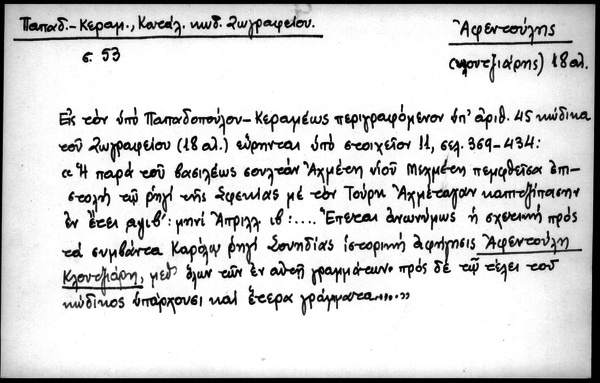 Παπαδ.-Κεραμ., Κατάλ. κωδ. Ζωγραφείου.
Ἀφεντούλης
σ. 53
(κλουτζιάρης) 18 αἰ.
Εἰς τὸν ὑπὸ Παπαδοπούλου-Κεραμέως περιγραφόμενον ὑπ' ἀριθ. 45 κώδικα
τοῦ Ζωγραφείου (18 αἰ.) εὕρηνται ὑπὸ στοιχεῖον 11, σελ. 369-434:
"Ἡ παρὰ τοῦ βασιλέως σουλτὰν Ἀχμέτη υἱοῦ Μεχμέτη πεμφθεῖσα ἐπι-
στολὴ τῷ ῥηγὶ τῆς Σφεκίας μὲ τὸν Τούρκ Ἀχμέταγαν καπιτζίπασην
ἐν ἔτει αψιβ': μηνὶ Ἀπριλλ ιβ':.... Ἕπεται ἀνωνύμως ἡ σχετικὴ πρὸς
τὰ συμβάντα Καρόλῳ ῥηγὶ Σουηδίας ἱστορικὴ ἀφήγησις Ἀφεντούλη
Κλουτζιάρη, μεθ' ὅλων τῶν ἐν αὐτῇ γραμμάτων. πρὸς δὲ τῷ τέλει τοῦ
κώδικος ὑπάρχουσι καὶ ἕτερα γράμματα....."